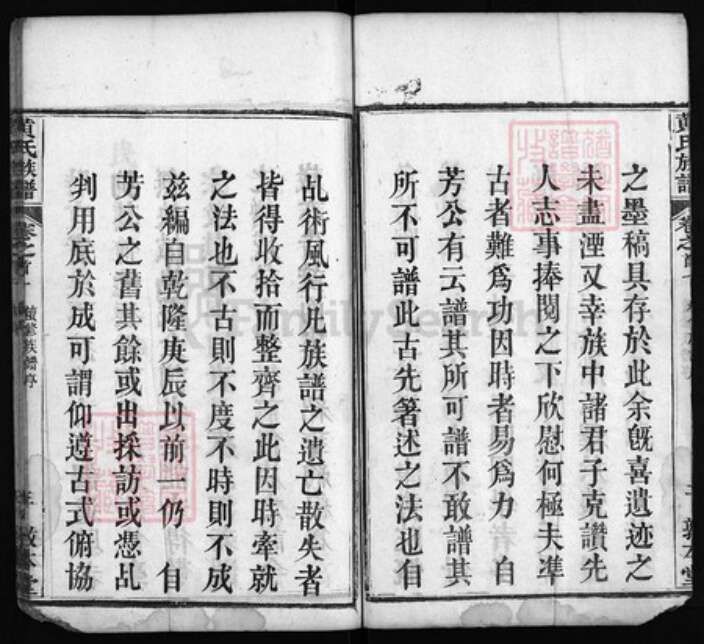 黃氏族譜
卷之首
之墨稿具存於此余旣喜遺迹之
未盡湮又幸族中諸君子克讚先
人志事捧閱之下欣慰何極夫準
古者難爲功因時者易爲力 自
芳公有云譜其所可譜不敢譜其
所不可譜此古先著述之法也自
乩術風行凡族譜之遺亡散失者
皆得收拾而整齊之此因時牽就
之法也不古則不度不時則不成
玆編自乾隆庚辰以前一仍 自
芳公之舊其餘或出採訪或憑乩
判用底於成可謂仰遵古式俯協
黃氏族譜
卷之首
續修族譜序
敦本堂
FamilySearch